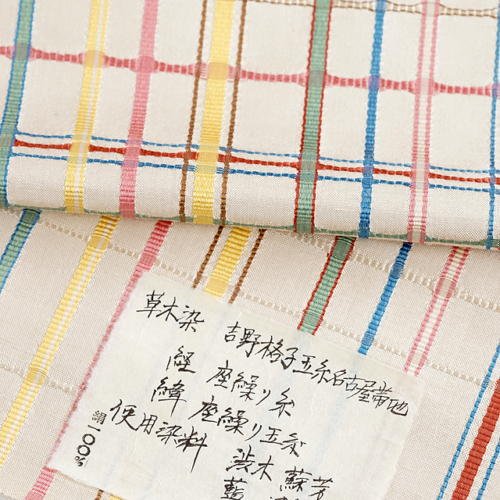 草木染 吉野格子玉糸名古屋帯地
経 座繰り糸
緯 座繰り玉糸
使用染料 渋木 蘇芳
藍
絹一〇〇%